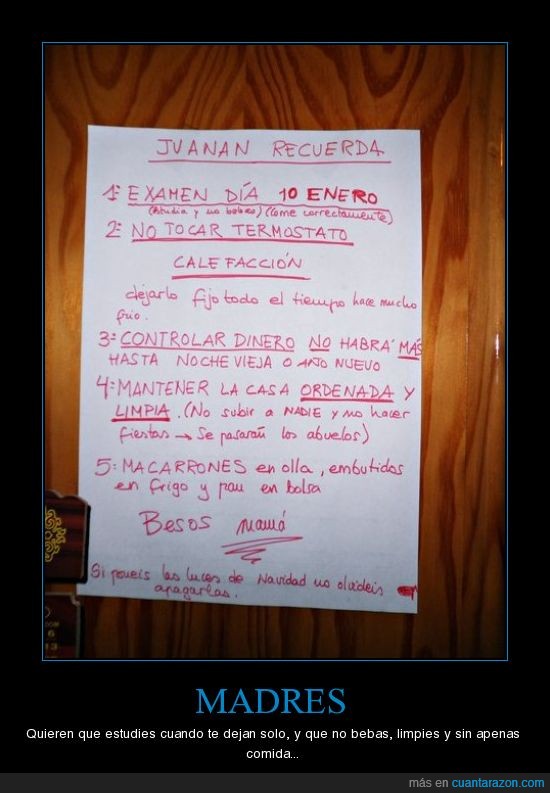 JUANAN RECUERDA
1: EXAMEN DÍA 10 ENERO
(estudia y no bebas) (come correctamente)
2: NO TOCAR TERMOSTATO
CALEFACCIÓN
dejarlo fijo todo el tiempo hace mucho
frio.
3: CONTROLAR DINERO NO HABRÁ MAS
HASTA NOCHE VIEJA O AÑO NUEVO
4: MANTENER LA CASA ORDENADA Y
LIMPIA. (No subir a NADIE y no hacer
fiestas → Se pasarán los abuelos)
5: MACARRONES en olla, embutidos
en frigo y pan en bolsa
Besos mamá
Si poneis las luces de Navidad no olvideis
apagarlas.
6
13
MADRES
Quieren que estudies cuando te dejan solo, y que no bebas, limpies y sin apenas
comida...
más en cuantarazon.com